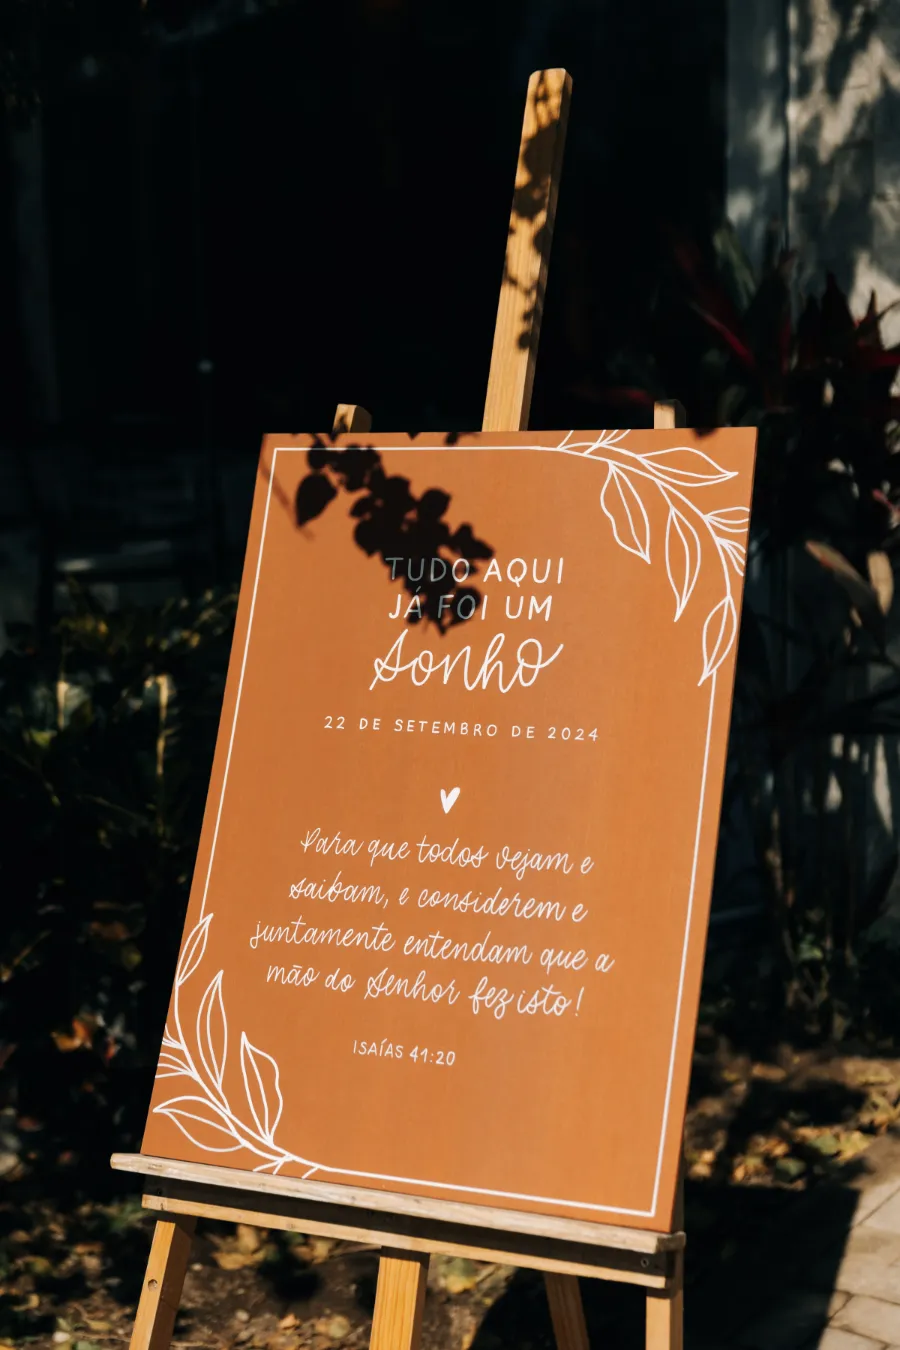 TUDO AQUI
JÁ FOI UM
Sonho
22 DE SETEMBRO DE 2024
Para que todos vejam e
saibam, e considerem e
juntamente entendam que a
mão do Senhor fez isto!
ISAÍAS 41:20